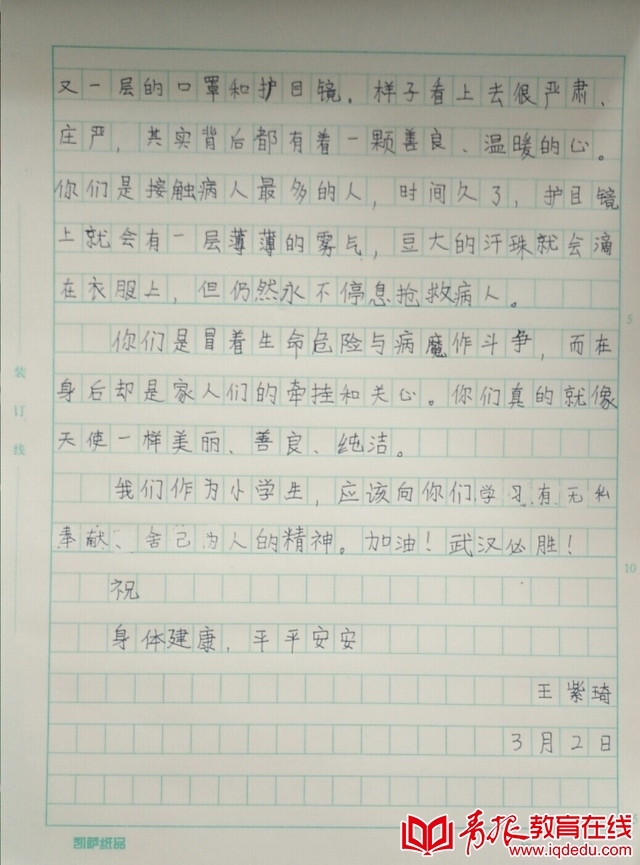 又一层的口罩和护目镜。样子看上去很严肃、
庄严，其实背后都有着一颗善良、温暖的心。
你们是接触病人最多的人，时间久了，护目镜
上就会有一层薄薄的雾气，豆大的汗珠就会滴
在衣服上，但仍然永不停息抢救病人。
你们是冒着生命危险与病魔作斗争，而在
身后却是家人们的牵挂和关心。你们真的就像
天使一样美丽、善良、纯洁。
我们作为小学生，应该向你们学习有无私
奉献、舍己为人的精神。加油！武汉必胜！
祝
身体建康，平平安安
王紫琦
3月2日
装订线
5
10
凯萨纸品
青报教育在线
www.iqdedu.com